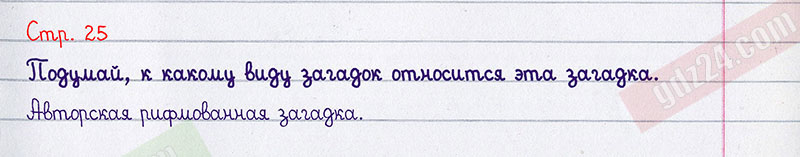 Стр. 25
Подумай, к какому виду загадок относится эта загадка.
Авторская рифмованная загадка.
gdz24.com